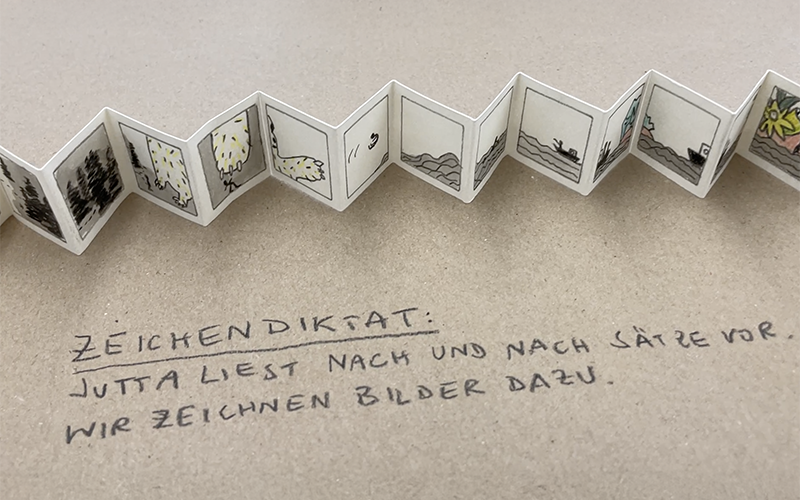 ZEICHENDIKTAT:
JUTTA LIEST NACH UND NACH SÄTZE VOR.
WIR ZEICHNEN BILDER DAZU.